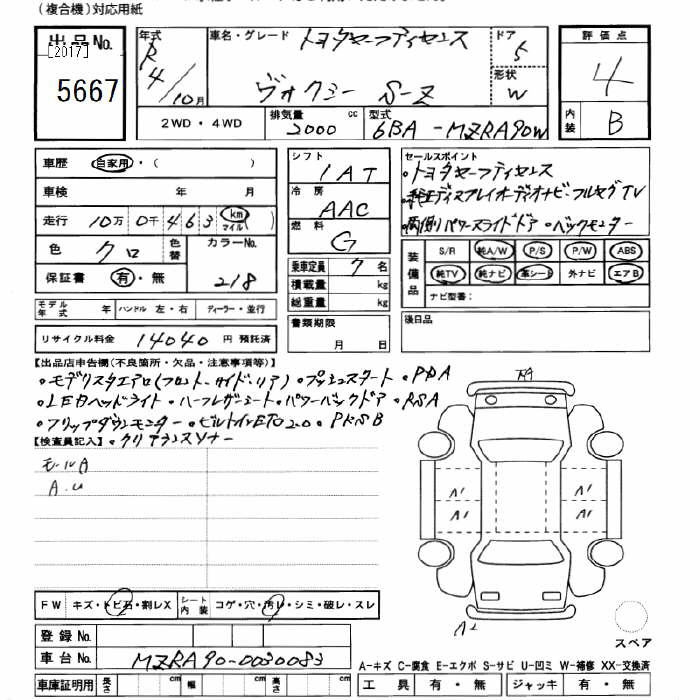 (複合機)対応用紙
出品No.
[2017]
5667
年式 R 4/10月
車名・グレード トヨタセーフティセンス
ヴォクシー S-Z
ドア 5
形状 W
評価点
4
内装 B
2WD・4WD
排気量 2000 cc
型式 6BA-MZRA90W
車歴 自家用・( )
車検 年 月
走行 10万 0千 463 km マイル( )
色 クロ 色替 カラーNo. 218
保証書 有・無
シフト 1AT
冷房 AAC
燃料 G
乗車定員 7 名
積載量 kg
総重量 kg
セールスポイント
・トヨタセーフティセンス
・純正ディスプレイオーディオナビ・フルセグTV
・両側パワースライドドア ・バックモニター
装備品 S/R 純A/W P/S P/W ABS
純TV 純ナビ 革シート 外ナビ エアB
ナビ型番:
モデル年式 年 ハンドル 左・右 ディーラー・並行
リサイクル料金 14040 円 預託済
書類期限 月 日
後日品
【出品店申告欄(不良箇所・欠品・注意事項等)】
・モデリスタエアロ(フロント、サイド、リア) ・プッシュスタート ・PDA
・LEDヘッドライト ・ハーフレザーシート ・パワーバックドア ・RSA
・フリップダウンモニター ・ビルトインETC2.0 ・PKSB
・クリアランスソナー
【検査員記入】
モールA
A.U
A1 A1
A1 A1
FW キズ・トビ石・割レX シート内装 コゲ・穴・汚レ・シミ・破レ・スレ
登録No.
車台No. MZRA90-0030083
スペア
A-キズ C-腐食 E-エクボ S-サビ U-凹ミ W-補修 XX-交換済
車庫証明用 長さ cm 幅 cm 高さ cm
工具 有・無 ジャッキ 有・無